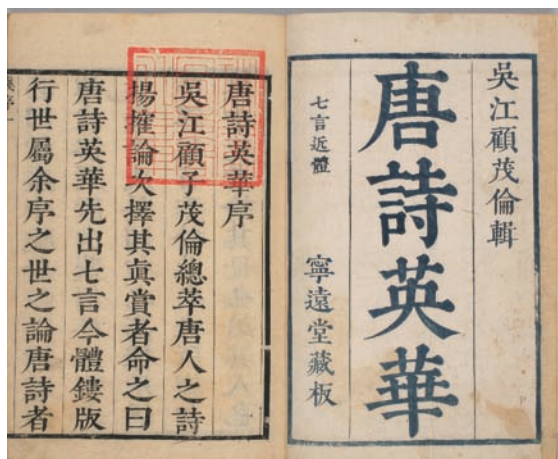 吳江顧茂倫輯
唐詩英華
七言近體
寧遠堂藏板
唐詩英華序
吳江顧子茂倫總萃唐人之詩
揚搉論次擇其真賞者命之曰
唐詩英華先出七言今體鏤版
行世屬余序之世之論唐詩者